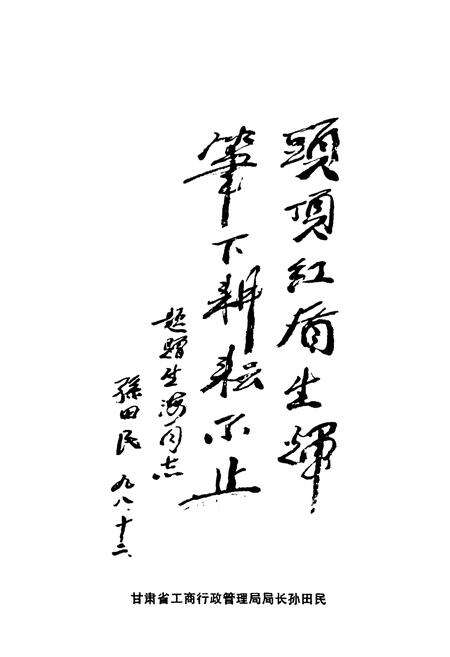 頭頂紅盾生輝
筆下耕耘不止
題贈生海同志
孫田民 九八.十二
甘肃省工商行政管理局局长孙田民